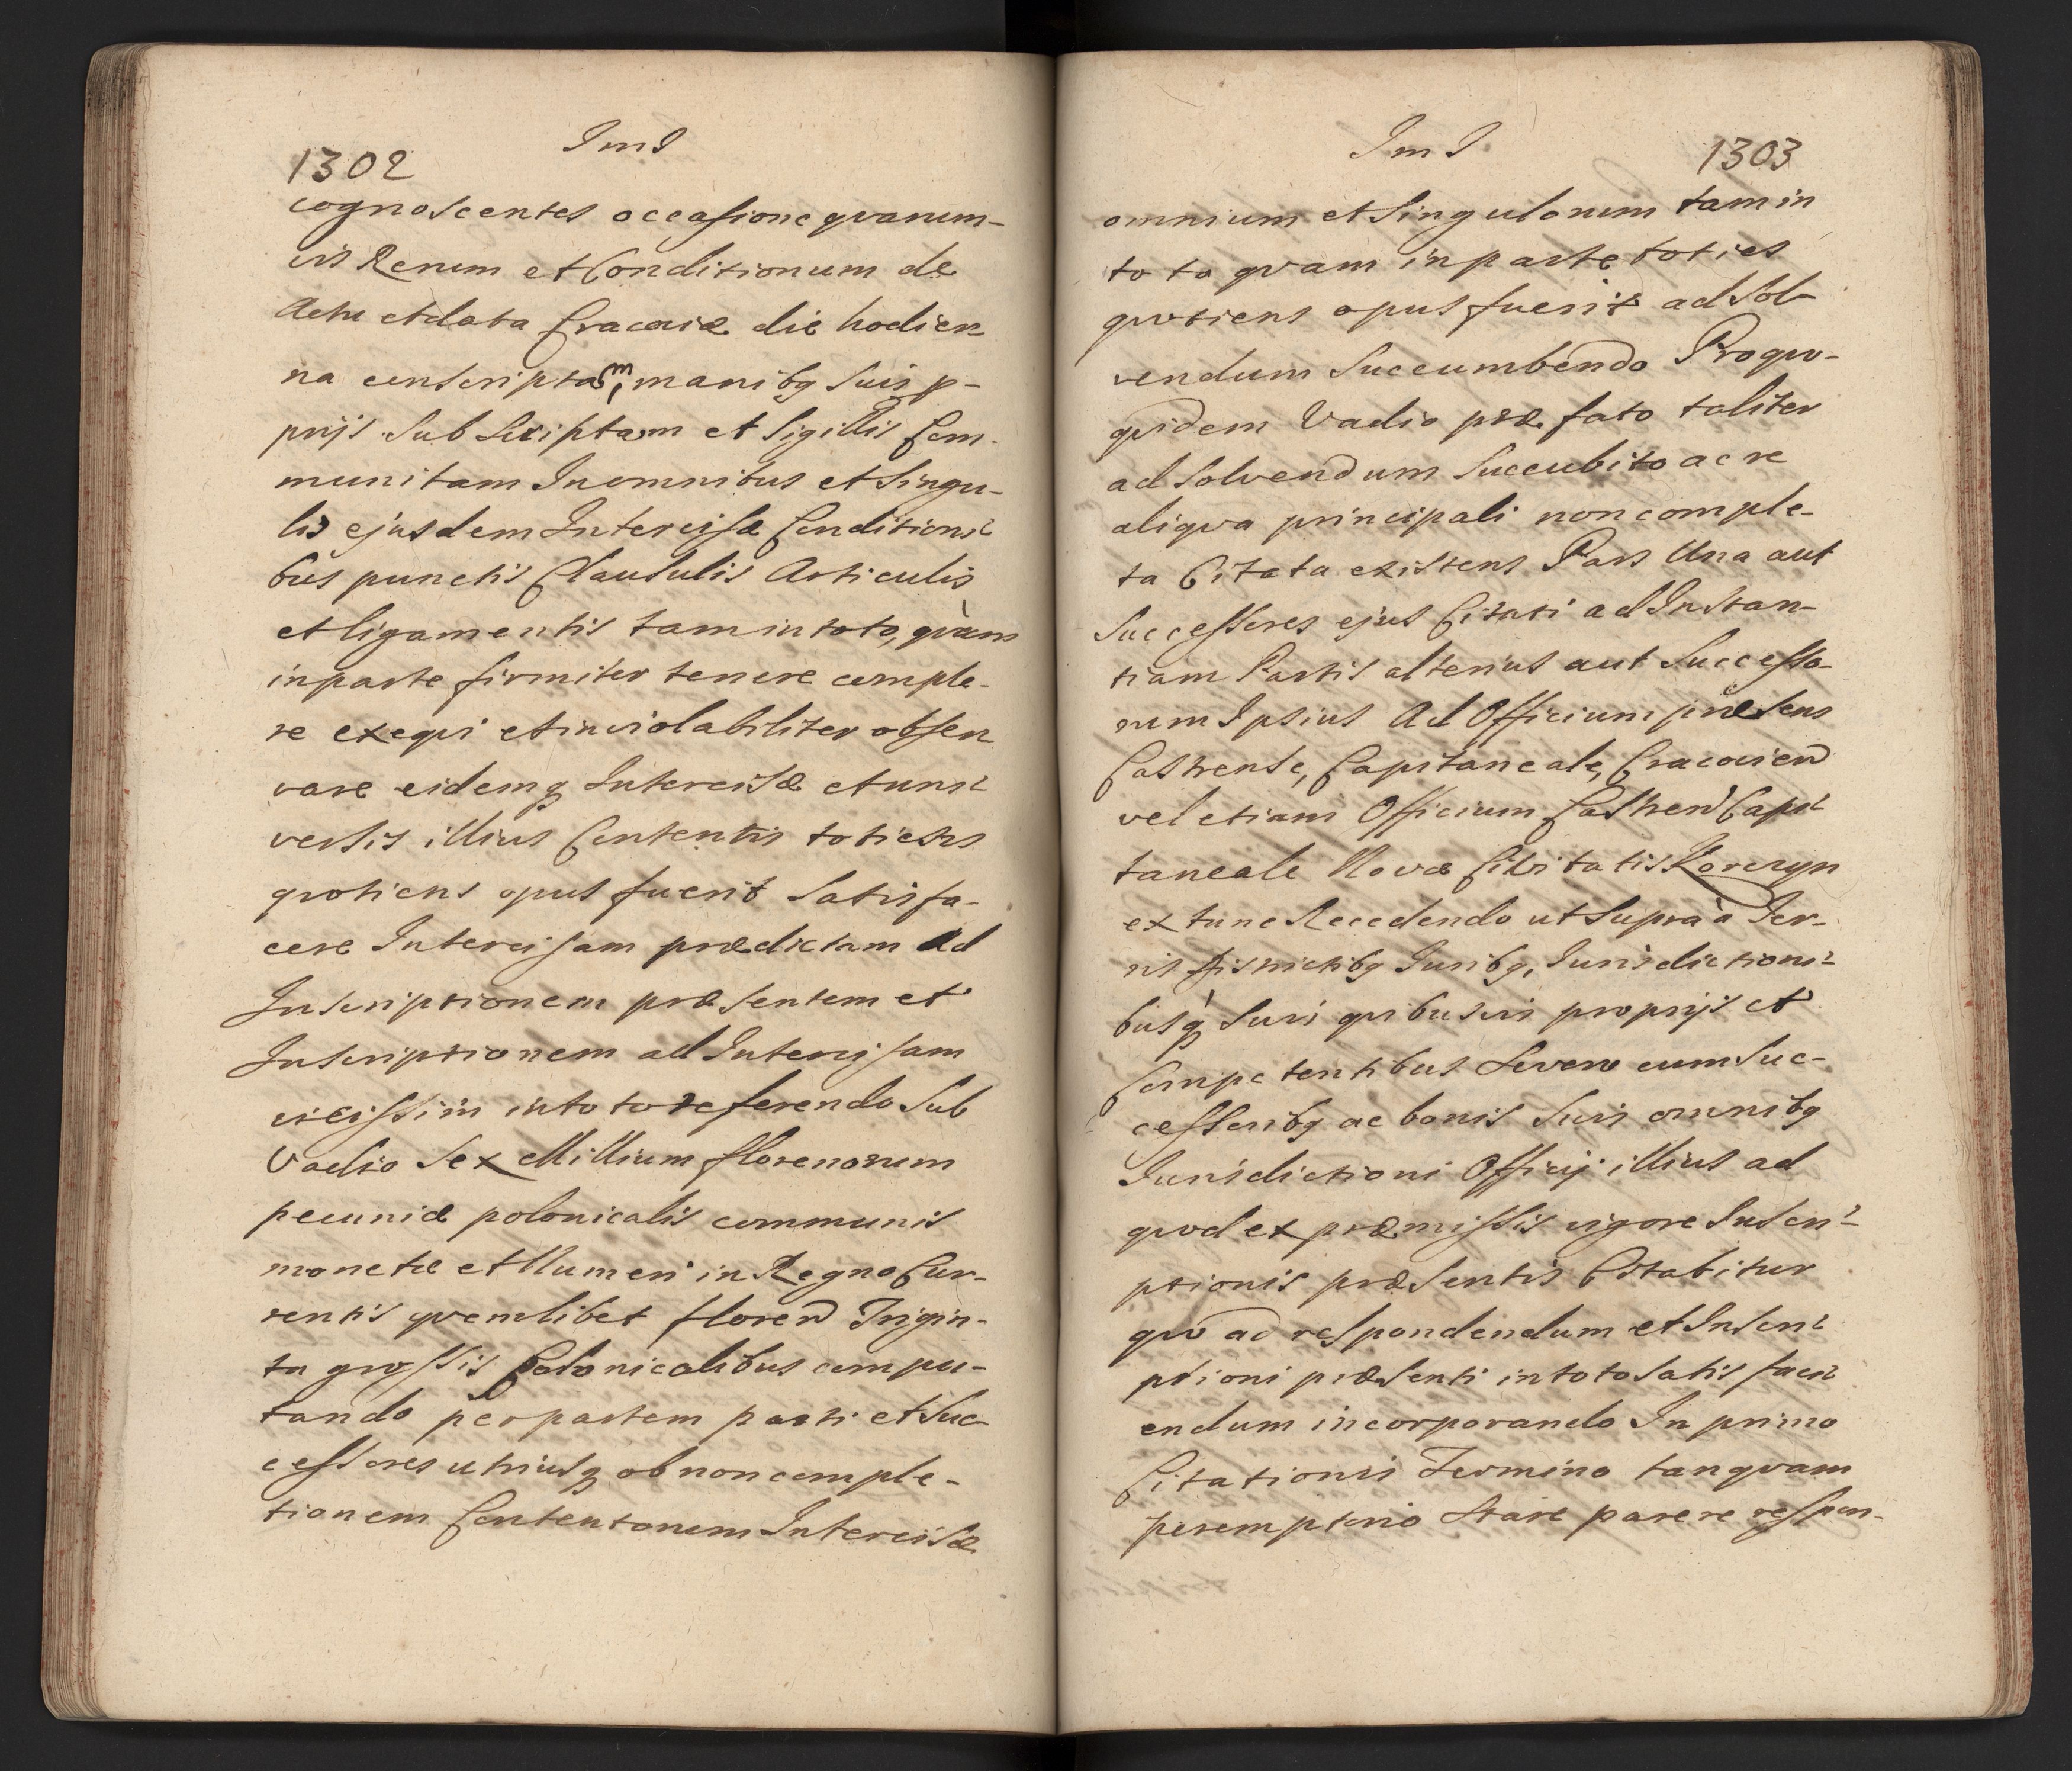 1302
Im I
cognoscentes occasione qvarum-
vis Rerum et Conditionum de
Actu et data Cracoviæ die hodier-
na conscriptam, manibq suis p-
prijs Subscriptam et Sigillis Com-
munitam In omnibus et Singu-
lis ejusdem Intercisæ Conditioni-
bus punctis Clausulis Articulis
et ligamentis tam in toto, qvàm
in parte firmiter tenere comple-
re exeqvi et inviolabiliter obser
vare eidemq Intercisæ et uni-
versis illius Contentis toties
qvotiens opus fuerit Satisfa-
cere Intercisam prædictam Ad
Inscriptionem præsentem et
Inscriptionem ad Intercisam
vicissim in toto referendo Sub
Vadio Sex Millium florenorum
pecuniæ polonicalis communis
monetæ et Numeri in Regno Cur-
rentis qvemlibet floren Trigin-
ta grossis Polonicalibus compu-
tando per partem parti et Suc
cessores utriusq ob non comple-
tionem Contentorum Intercisæ
Im I
1303
omnium et Singulorum tam in
toto qvam in parte toties
qvotiens opus fuerit ad Sol-
vendum Succumbendo Pro qvo-
qvidem Vadio præfato taliter
ad Solvendum Succubito ac re
aliqva principali non comple-
ta Citata existens Pars Una aut
Successores ejus Citati ad Instan-
tiam Partis alterius aut Successo-
rum Ipsius Ad Officium præsens
Castrense, Capitaneale, Cracovien
vel etiam Officium Castren Capi-
taneale Novæ Civitatis Korczyn
ex tunc Recedendo ut Supra à Ter-
ris Districtibq Juribq, Jurisdictioni-
busq Suis qvibusvis proprijs et
Competentibus Se vero cum Suc-
cessoribq ac bonis Suis omnibq
Jurisdictioni Officij illius ad
qvod ex præmissis vigore Inscri-
ptionis præsentis Citabitur
qvo ad respondendum et Inscri-
ptioni præsenti in toto Satisfaci-
endum incorporando In primo
Citationis Termino tanqvam
peremptorio Stare parere respon-